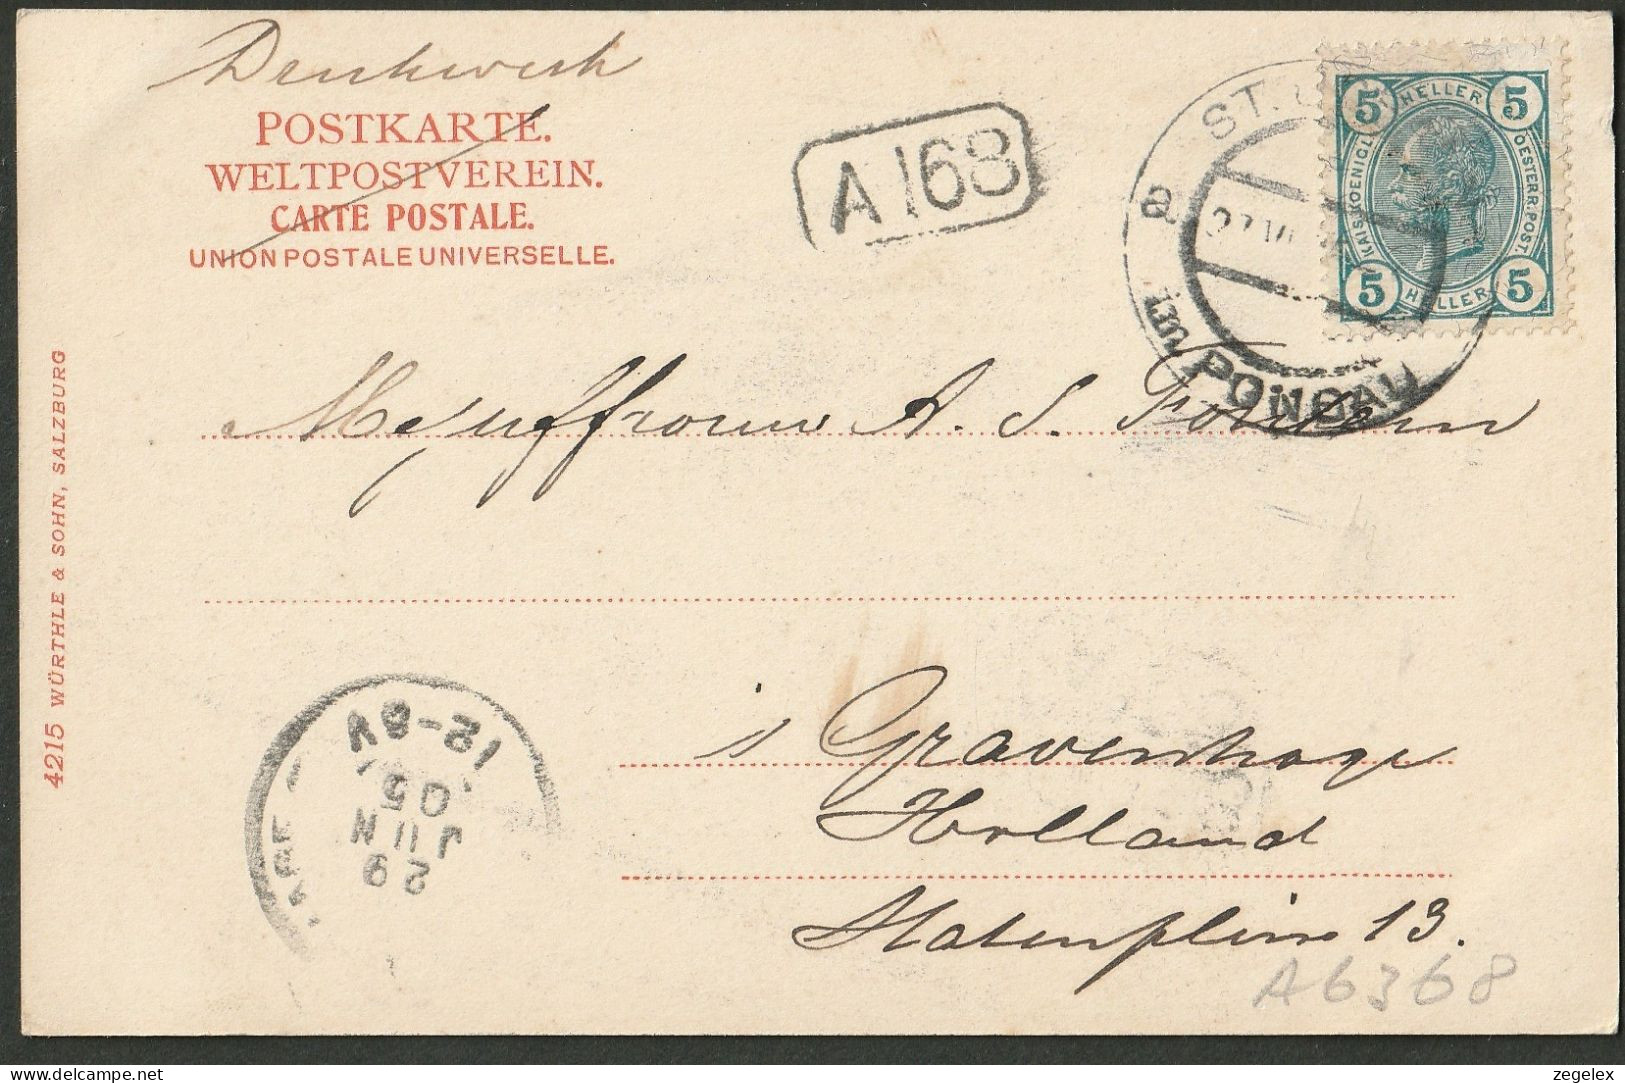 Drukwerk
POSTKARTE.
WELTPOSTVEREIN.
CARTE POSTALE.
UNION POSTALE UNIVERSELLE.
A 168
ST.
a
27 VI
im PONGAU
5 HELLER 5
KAIS. KOENIGL.
OESTERR. POST.
5 HELLER 5
Mejuffrouw A. S.
's Gravenhage
Holland
Statenplein 13.
A6368
12-8V
05
JUN
29
4215 WÜRTHLE & SOHN, SALZBURG
zegelex
delcampe.net